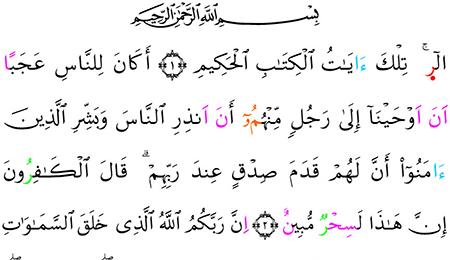 بِسْمِ اللَّهِ الرَّحْمَٰنِ الرَّحِيمِ
الٓر۪ ۚ تِلْكَ ءَايَٰتُ الْكِتَٰبِ الْحَكِيمِ ۝١ أَكَانَ لِلنَّاسِ عَجَبًا
اَنَ اَوْحَيْنَآ إِلَىٰ رَجُلٍ مِّنْهُمُۥٓ أَنَ اَنذِرِ النَّاسَ وَبَشِّرِ الَّذِينَ
ءَامَنُوٓاْ أَنَّ لَهُمْ قَدَمَ صِدْقٍ عِندَ رَبِّهِمْ ۗ قَالَ الْكَٰفِرُونَ
إِنَّ هَٰذَا لَسِحْرٌ مُّبِينٌ ۝٢ اِنَّ رَبَّكُمُ اللَّهُ الَّذِى خَلَقَ السَّمَٰوَٰتِ